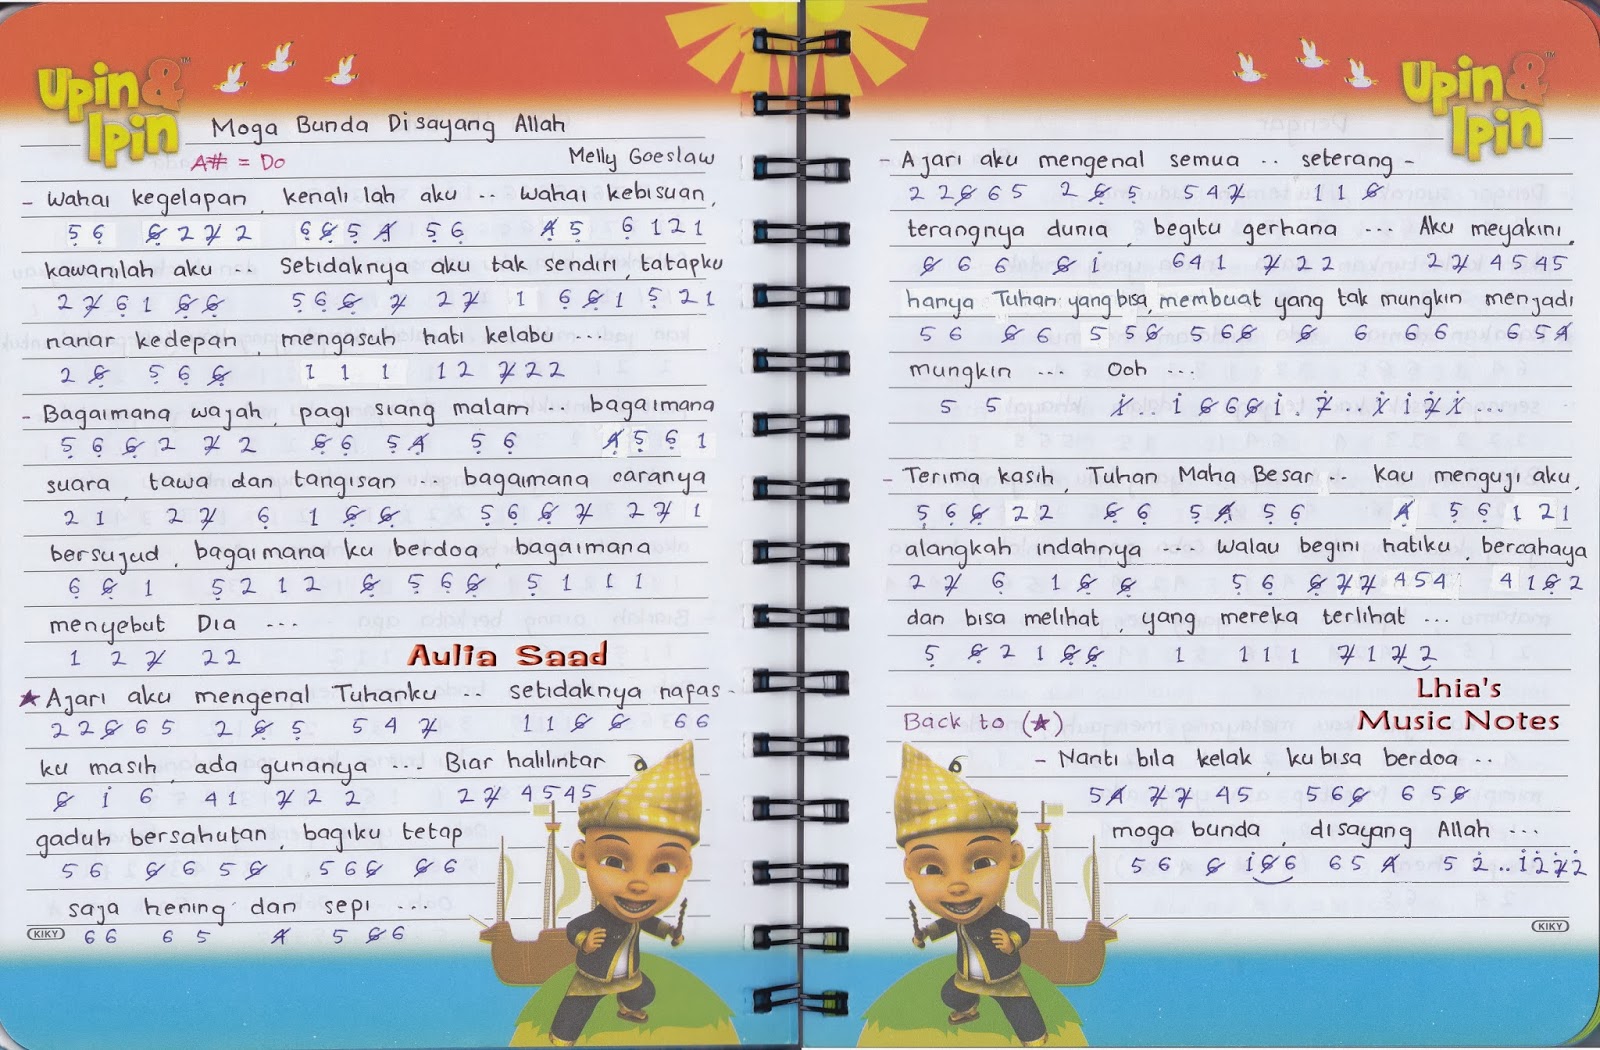 Upin & Ipin™
Moga Bunda Disayang Allah
A# = Do
Melly Goeslaw
- Wahai kegelapan, kenali lah aku .. wahai kebisuan,
5 6 6 2 2 2 6 6 5 4 5 6 4 5 6 1 2 1
kawanilah aku .. Setidaknya aku tak sendiri, tatapku
2 2 6 1 6 6 5 6 6 2 2 2 1 6 6 1 5 2 1
nanar kedepan, mengasuh hati kelabu ...
2 6 5 6 6 1 1 1 1 2 2 2 2
- Bagaimana wajah, pagi siang malam .. bagaimana
5 6 6 2 2 2 6 6 5 4 5 6 4 5 6 1
suara, tawa dan tangisan .. bagaimana caranya
2 1 2 2 6 1 6 6 5 6 6 2 2 2 1
bersujud, bagaimana ku berdoa, bagaimana
6 6 1 5 2 1 2 6 5 6 6 5 1 1 1
menyebut Dia ...
1 2 2 2 2
Aulia Saad
★ Ajari aku mengenal Tuhanku .. setidaknya nafas -
2 2 6 6 5 2 6 5 5 4 2 1 1 6 6 6 6
ku masih, ada gunanya ... Biar halilintar
6 i 6 4 1 2 2 2 2 2 4 5 4 5
gaduh bersahutan, bagiku tetap
5 6 6 6 5 6 5 6 6 6 6
saja hening dan sepi ...
KIKY
6 6 6 5 4 5 6 6
Upin & Ipin™
- Ajari aku mengenal semua .. seterang -
2 2 6 6 5 2 6 5 5 4 2 1 1 6
terangnya dunia, begitu gerhana ... Aku meyakini,
6 6 6 6 i 6 4 1 2 2 2 2 2 4 5 4 5
hanya Tuhan yang bisa, membuat yang tak mungkin menjadi
5 6 6 6 5 5 6 5 6 6 6 6 6 6 6 5 4
mungkin ... Ooh ...
5 5 i .. i 6 6 6 i . 2 .. i i 2 i ...
- Terima kasih, Tuhan Maha Besar .. Kau menguji aku,
5 6 6 2 2 6 6 5 4 5 6 4 5 6 1 2 1
alangkah indahnya ... walau begini hatiku, bercahaya
2 2 6 1 6 6 5 6 6 2 2 4 5 4 4 1 6 2
dan bisa melihat, yang mereka terlihat ...
5 6 2 1 6 6 1 1 1 1 2 1 2 2
Lhia's
Music Notes
Back to (★)
- Nanti bila kelak, ku bisa berdoa ..
5 4 2 2 4 5 5 6 6 6 5 6
moga bunda, disayang Allah ...
5 6 6 i 6 6 6 5 4 5 2 .. i 2 2 2
KIKY